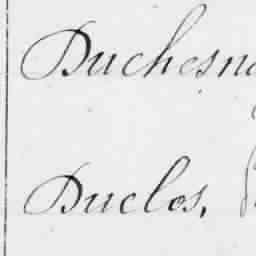 Duchesn
Duclos,